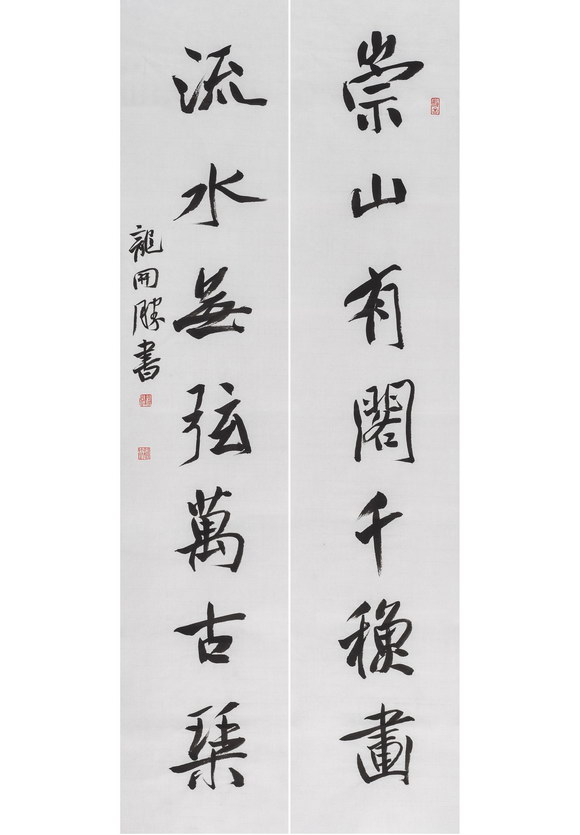 崇山有閣千穐畫
流水無弦萬古琹
龍開勝書